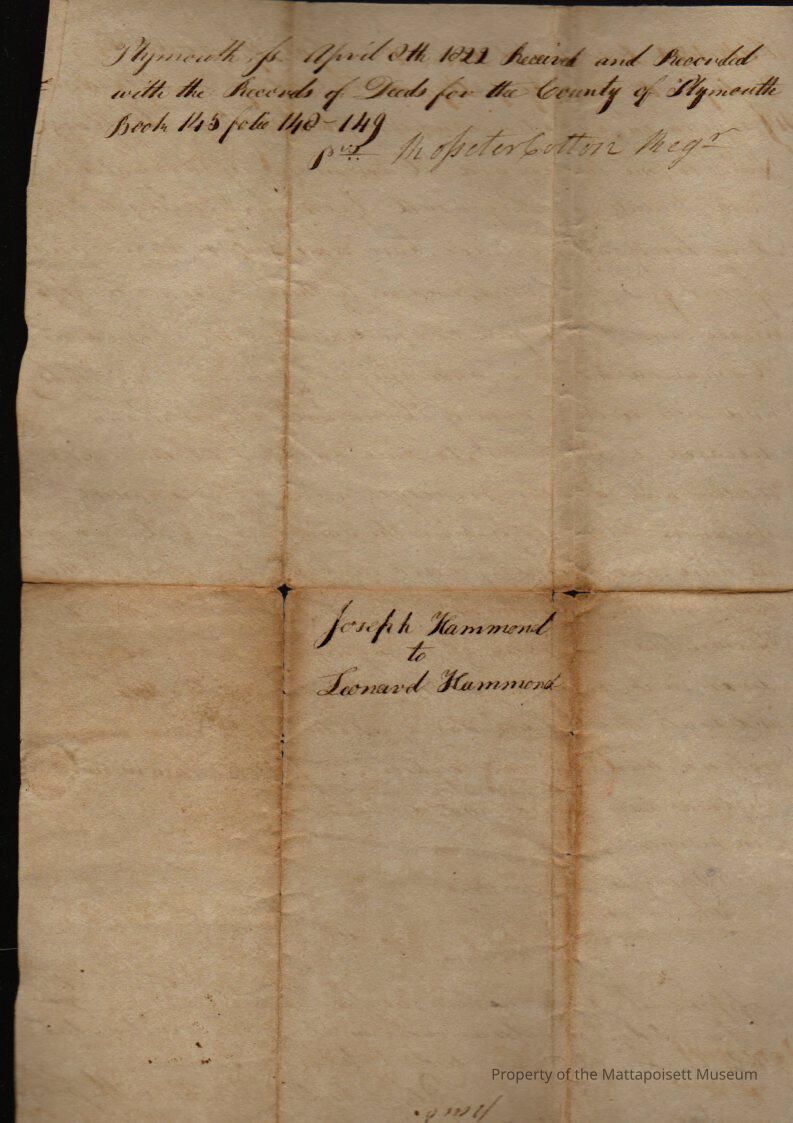 Plymouth ss. April 8th 1822 Received and Recorded
with the Records of Deeds for the County of Plymouth
Book 145 folio 148-149
Rosseter Cotton Regr
Joseph Hammond
to
Leonard Hammond
Property of the Mattapoisett Museum